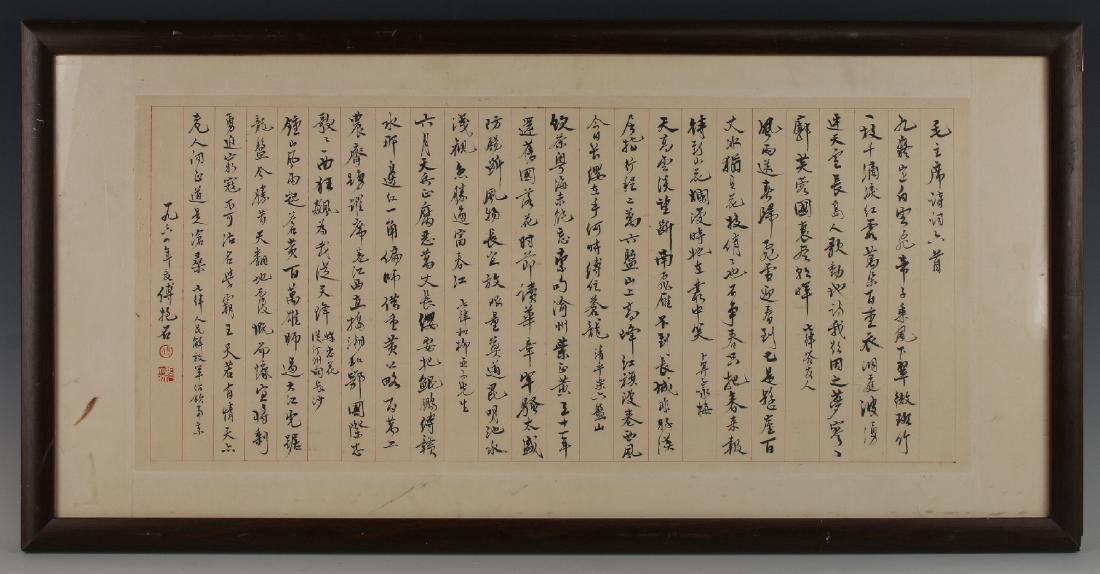 毛主席诗词六首
九嶷山上白雲飛帝子乘風下翠微斑竹
一枝千滴淚紅霞萬朵百重衣洞庭波湧
連天雪長島人歌動地詩我欲因之夢寥〻
廓芙蓉國裏盡朝暉 七律答友人
風雨送春歸飛雪迎春到已是懸崖百
丈冰猶有花枝俏俏也不爭春只把春來報
待到山花爛漫時她在叢中笑 卜算子詠梅
天高雲淡望斷南飛雁不到長城非好漢
屈指行程二萬六盤山上高峰紅旗漫卷西風
今日長纓在手何時縛住蒼龍 清平樂六盤山
飲茶粵海未能忘索句渝州葉正黃三十一年
還舊國落花時節讀華章牢騷太盛
防腸斷風物長宜放眼量莫道昆明池水
淺觀魚勝過富春江 七律和柳亞子先生
六月天兵征腐惡萬丈長纓要把鯤鵬縛贛
水那邊紅一角偏師借重黃公略百萬工
農齊踴躍席卷江西直搗湘和鄂國際悲
歌一曲狂飆為我從天降 蝶戀花從汀州向長沙
鍾山風雨起蒼黃百萬雄師過大江虎踞
龍盤今勝昔天翻地覆慨而慷宜將剩
勇追窮寇不可沽名學霸王天若有情天亦
老人間正道是滄桑 七律人民解放軍佔領南京
一九六四年夏傅抱石